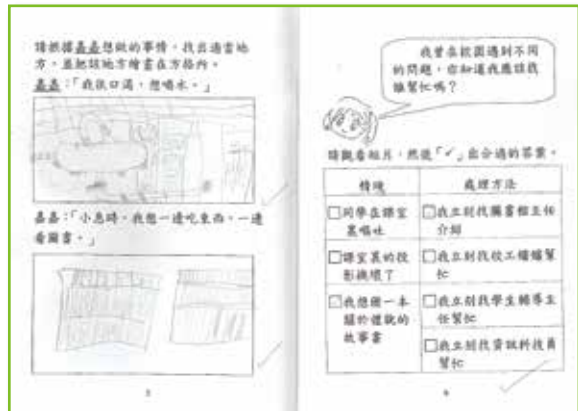 請根據嘉嘉想做的事情，找出適當地
方，並把該地方繪畫在方格內。
嘉嘉：「我很口渴，想喝水。」
嘉嘉：「小息時，我想一邊吃東西，一邊
看圖書。」
5
我曾在校園遇到不同
的問題，你知道我應該找
誰幫忙嗎？
請觀看相片，然後「✓」出合適的答案。
情境
處理方法
□同學在課室
裏嘔吐
□我立刻找圖書館主任
介紹
□課室裏的投
影機壞了
□我立刻找校工嬸嬸幫
忙
☑我想借一本
關於禮貌的
故事書
□我立刻找學生輔導主
任幫忙
□我立刻找資訊科技員
幫忙
6